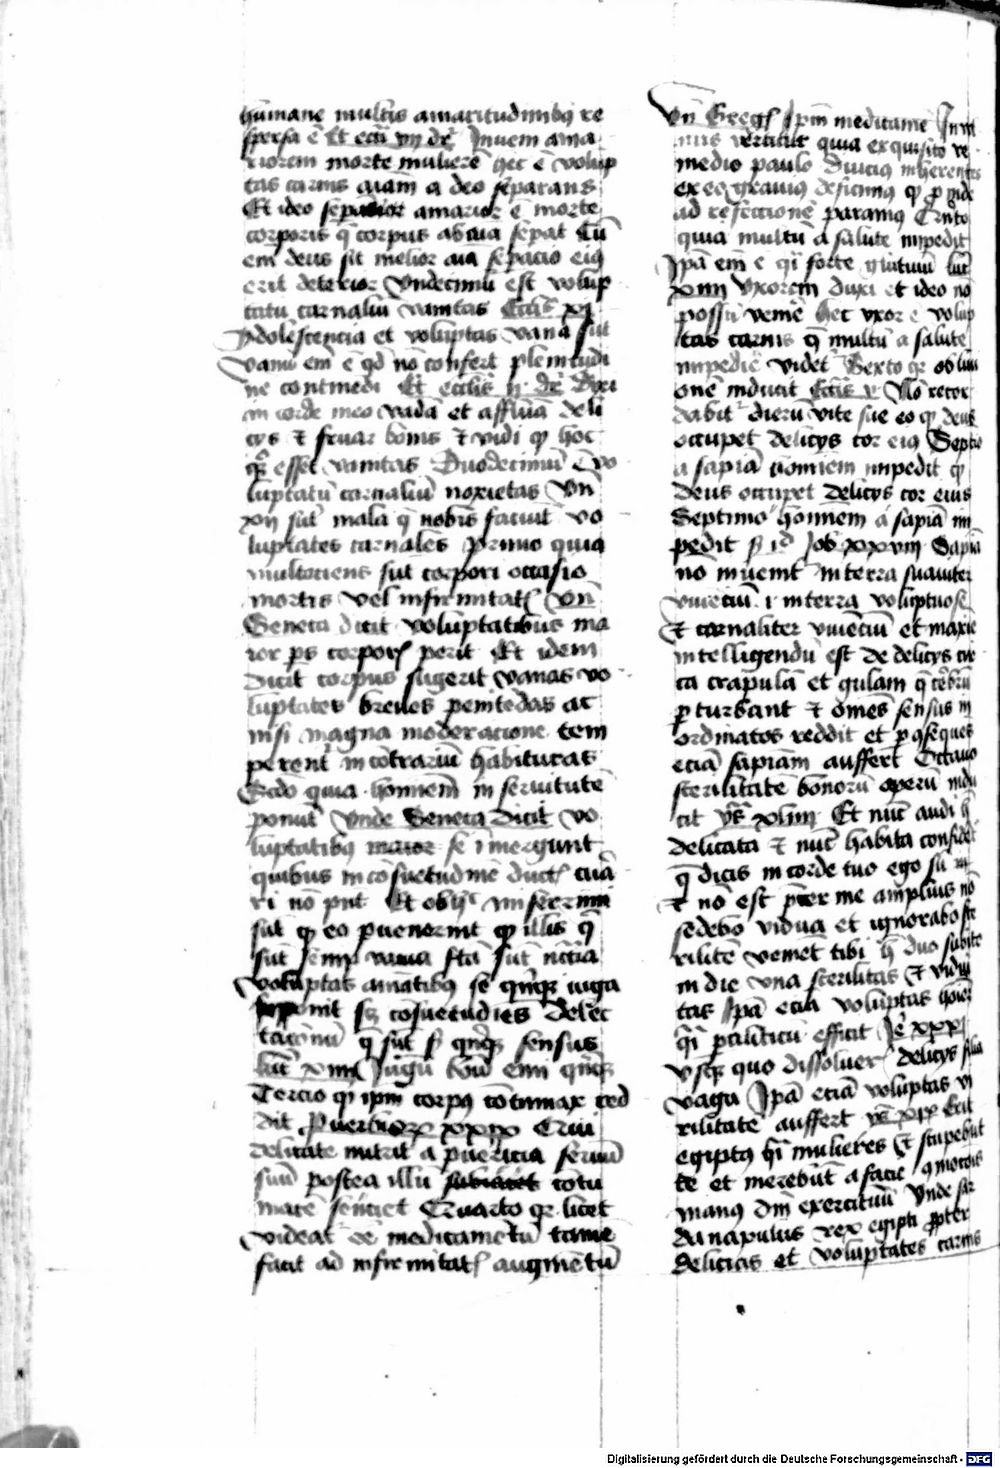 humane multis amaritudinibꝫ re
spersa ē Et ecti vij dr̄ Inueni ama
riorem morte mulierē hec ē volup
tas carnis aīam a deo separans
Et ideo sepatior amarior ē morte
corporis q̄ corpus ab aīa sepat Cū
em̄ deus sit melior aīa sepacio eiꝯ
erit deterior Vndecimū est volup
tatū carnaliū vanitas Ectis xj
Adolescencia et voluptas vana sūt
vanū em̄ ē qd̄ nō confert plenitudi
ne continenti Et ecclis ij dr̄ Dixi
in corde meo vadā et affluā deli
cijs ⁊ fruar bonis ⁊ vidi qꝫ hoc
qꝫ esset vanitas Duodecimū ē vo
luptatū carnaliū noxietas Vn̄
xij sūt mala q̄ nobis faciūt vo
luptates carnales Primo quia
multociens sūt corpori occasio
mortis vel infirmitatꝭ Vn̄
Seneca dicit voluptatibus ma
ior ps̄ corporꝭ perit Et idem
Dicit corpus fugerit vanas vo
luptates breues penitēdas ac
nisi magna moderacione tem
perent̄ in cōtrariū habituras
Scdo quia hominem in seruitutē
ponūt Vnde Seneca Dicit vo
luptatibꝫ maior se īmergunt
quibus in cōsuetudinē ductꝭ cura
ri nō pn̄t Et ob hͨ miserrimi
sūt qꝫ eo puenerint qꝫ illis q̄
sūt sēmp vana sc̄a sūt nc̄cia
voluptas amātibꝫ se qn̄qꝫ iuga
īponit sꝫ cōsuetudies delec
tacōnū q̄ sūt ꝑ qn̄qꝫ sensus
luc̄ xiiij Jugū boū emi qn̄qꝫ
Tercio qꝫ ipm̄ corpꝯ cōtumax red
dit Puerbiorꝫ xxix Qui
delicate nutrit a puericia seruū
suū postea illū subiciet cōtu
macē senciet Quarto qꝫ licet
videat̄ ee medicamētū tamē
facit ad infirmitatꝭ augmētū
Vn̄ Gregꝭ Ipm̄ medicamē In vul
nus vertitur quia exquisito re
medio paulo diucius inherentes
ex eo grauiꝯ deficimꝯ qꝫ prouide
ad refectionē paramꝯ Quito
quia multū a salute impedit
Ipā em̄ ē qͥ forte glutinū luc̄
xiiij Vxorem duxi et ideo nō
possū venire hec vxor ē volup
tas carnis q̄ multū a salute
impedire videt̄ Sexto qꝫ obliui
onē inducit Ectis v Nō recor
dabit̄ dierū vite sue eo qꝫ deus
occupet delicijs cor eiꝯ Septīo
a sapīa hominem impedit qꝫ
Deus occupet delicijs cor eius
Septimo hominem a sapiā im
pedit ꝑ id Job xxviij Sapīa
nō inuenit̄ in terra suauiter
viuenciū .i. in terra voluptuose
⁊ carnaliter viuenciū et maxīe
intelligendū est de delicijs cir
ca crapulā et gulam q̄ cerebrū
ꝑturbant ⁊ omēs sensus in
ordinatos reddit et ꝑ ꝯseqūes
eciā sapiam auffert Octauo
sterilitatē bonorū operū indu
cit ys̄ xlvij Et nūc audi h̄
delicata ⁊ nūc habita confidēt
q̄ dicis in corde tuo ego sū
⁊ nō est pter me amplius nō
sedebo vidua et ignorabo ste
rilitē veniet tibi h̄ duo subito
in die vna sterilitas ⁊ vidui
tas Ipā eciā voluptas hoīem
qͥ pralicicū efficit Je xxxj
vsqꝫ quo dissolueris delicijs filia
vaga Ipā eciā voluptas vi
rilitatē auffert ys̄ xix Erit
egiptꝯ qͥ mulieres ⁊ stupebūt
te et merebūt a facie ꝯmocōis
manꝯ dn̄i exercituū Vnde sar
danapulus rex egipti ꝓpter
delicias et voluptates carnis
Digitalisierung gefördert durch die Deutsche Forschungsgemeinschaft - DFG